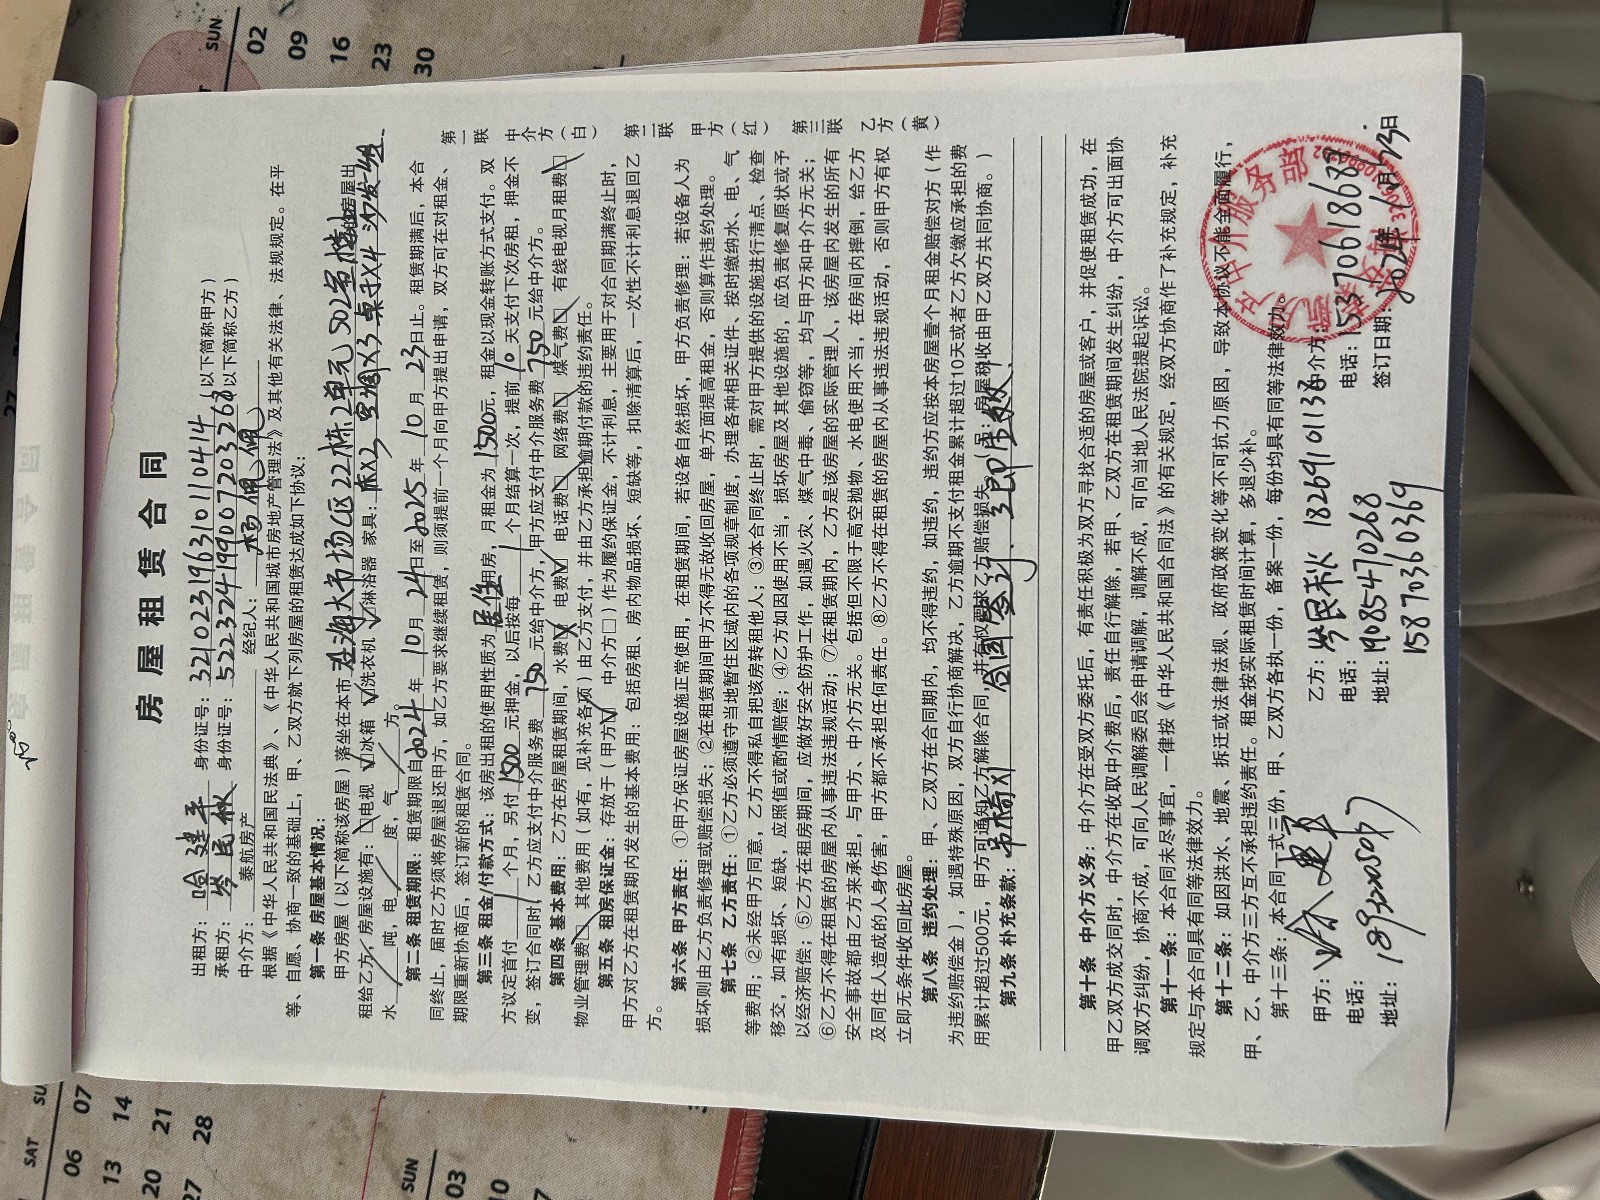 房 屋 租 赁 合 同
出租方：哈建平 身份证号：321023196310110414（以下简称甲方）
承租方：岑民秋 身份证号：522324199007203268（以下简称乙方）
中介方：泰航房产 经纪人：杨佩佩
根据《中华人民共和国民法典》、《中华人民共和国城市房地产管理法》及其他有关法律、法规规定。在平
等、自愿、协商一致的基础上，甲、乙双方就下列房屋的租赁达成如下协议：
第一条 房屋基本情况：
甲方房屋（以下简称该房屋）落坐在本市 大市场C区22栋2单元502室 的房屋出
租给乙方，房屋设施有：□电视 ☑冰箱 ☑洗衣机 ☑淋浴器 家具：床X2 空调X3 桌子X4 沙发一组
水／吨，电／度，气／方。
第二条 租赁期限：租赁期限自2024年10月24日至2025年10月23日止。租赁期满后，本合
同终止，届时乙方须将房屋退还甲方，如乙方要求继续租赁，则须提前一个月向甲方提出申请，双方可在对租金、
期限重新协商后，签订新的租赁合同。
第三条 租金/付款方式：该房出租的使用性质为居住用房，月租金为1500元，租金以现金转账方式支付。双
方议定首付1个月，另付1500元押金，以后按每1个月结算一次，提前10天支付下次房租，押金不
变，签订合同时，乙方应支付中介服务费750元给中介方，甲方应支付中介服务费750元给中介方。
第四条 基本费用：乙方在房屋租赁期间，水费☑ 电费☑ 电话费□ 网络费□ 煤气费□ 有线电视月租费□
物业管理费□ 其他费用（如有，见补充各项）由乙方支付，并由乙方承担逾期付款的违约责任。
第五条 租房保证金：存放于（甲方☑ 中介方□）作为履约保证金，不计利息，主要用于对合同期满终止时，
甲方对乙方在租赁期内发生的基本费用：包括房租、房内物品损坏、短缺等，扣除清算后，一次性不计利息退回乙
方。
第六条 甲方责任：①甲方保证房屋设施正常使用，在租赁期间，若设备自然损坏，甲方负责修理：若设备人为
损坏则由乙方负责修理或赔偿损失；②在租赁期间甲方不得无故收回房屋，单方面提高租金，否则算作违约处理。
第七条 乙方责任：①乙方必须遵守当地暂住区域内的各项规章制度，办理各种相关证件、按时缴纳水、电、气
等费用；②未经甲方同意，乙方不得私自把该房转租他人；③本合同终止时，需对甲方提供的设施进行清点、检查
移交，如有损坏、短缺，应照值或酌情赔偿；④乙方如因使用不当，损坏房屋及其他设施的，应负责修复原状或予
以经济赔偿；⑤乙方在租房期间，应做好安全防护工作，如遇火灾、煤气中毒、偷窃等，均与甲方和中介方无关；
⑥乙方不得在租赁的房屋内从事违法违规活动；⑦在租赁期内，乙方是该房屋的实际管理人，该房屋内发生的所有
安全事故都由乙方来承担，与甲方、中介方无关。包括但不限于高空抛物、水电使用不当，在房间内摔倒，给乙方
及同住人造成的人身伤害，甲方都不承担任何责任。⑧乙方不得在租赁的房屋内从事违法违规活动，否则甲方有权
立即无条件收回此房屋。
第八条 违约处理：甲、乙双方在合同期内，均不得违约，如违约，违约方应按本房屋壹个月租金赔偿对方（作
为违约赔偿金），如遇特殊原因，双方自行协商解决，乙方逾期不支付租金累计超过10天或者乙方欠缴应承担的费
用累计超过500元，甲方可通知乙方解除合同，并有权要求乙方赔偿损失。（另：房屋税收由甲乙双方共同协商。）
第九条 补充条款： 合同签订，立即生效
第十条 中介方义务：中介方在受双方委托后，有责任积极为双方寻找合适的房屋或客户，并促使租赁成功，在
甲乙双方成交同时，中介方在收取中介费后，责任自行解除，若甲、乙双方在租赁期间发生纠纷，中介方可出面协
调双方纠纷，协商不成，可向人民调解委员会申请调解，调解不成，可向当地人民法院提起诉讼。
第十一条：本合同未尽事宜，一律按《中华人民共和国合同法》的有关规定，经双方协商作了补充规定，补充
规定与本合同具有同等法律效力。
第十二条：如因洪水、地震、拆迁或法律法规、政府政策变化等不可抗力原因，导致本协议不能全面履行，
甲、乙、中介方三方互不承担违约责任。租金按实际租赁时间计算，多退少补。
第十三条：本合同一式三份，甲、乙双方各执一份，备案一份，每份均具有同等法律效力。
甲方： 乙方：岑民秋 18269101136 中介方：
电话：18932205097 电话：19085470268 电话：15370618687
地址： 地址：15870360369 签订日期：2024年10月23日
第一联 中介方（白） 第二联 甲方（红） 第三联 乙方（黄）
中介服务部
SUN
02
09
16
23
30
SAT
06
13
20
27
SU
07
14
21
28
SUN
03
10